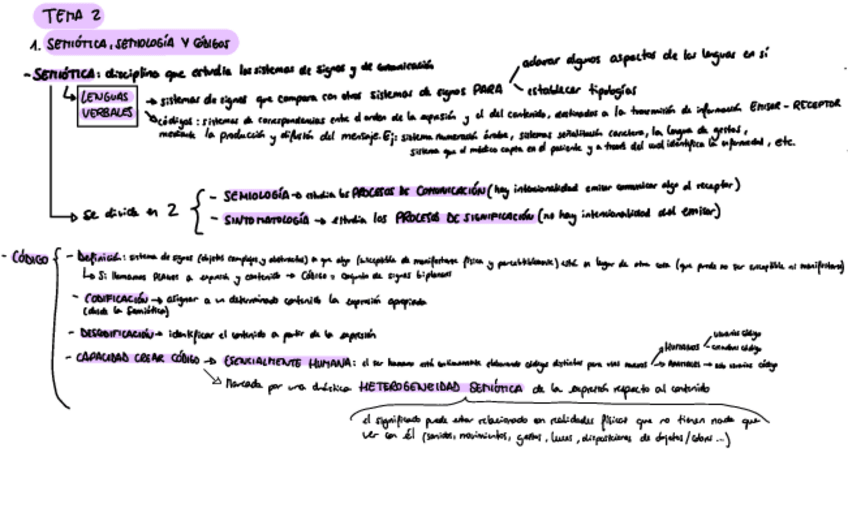 TEMA 2
1. SEMIÓTICA, SEMIOLOGÍA Y CÓDIGOS
- SEMIÓTICA: disciplina que estudia los sistemas de signos y de comunicación
LENGUAS VERBALES → sistemas de signos que compara con otros sistemas de signos PARA
aclarar algunos aspectos de las lenguas en sí
establecer tipologías
códigos: sistemas de correspondencias entre el orden de la expresión y el del contenido, destinados a la transmisión de información EMISOR - RECEPTOR
mediante la producción y difusión del mensaje. Ej: sistema numeración árabe, sistemas señalización carretera, la lengua de gestos,
sistema que el médico capta en el paciente y a través del cual identifica la enfermedad, etc.
Se divide en 2
- SEMIOLOGÍA → estudia los PROCESOS DE COMUNICACIÓN (hay intencionalidad emisor comunicar algo al receptor)
- SINTOMATOLOGÍA → estudia los PROCESOS DE SIGNIFICACIÓN (no hay intencionalidad del emisor)
- CÓDIGO
- Definición: sistema de signos (objetos complejos y abstractos) en que algo (susceptible de manifestarse física y perceptiblemente) está en lugar de otra cosa (que puede no ser susceptible al manifestarse)
↳ Si llamamos PLANOS a expresión y contenido → Código = conjunto de signos biplanares
- CODIFICACIÓN → asignar a un determinado contenido la expresión apropiada
(desde la Semiótica)
- DESCODIFICACIÓN → identificar el contenido a partir de la expresión
- CAPACIDAD CREAR CÓDIGO → ESENCIALMENTE HUMANA: el ser humano está continuamente elaborando códigos distintos para usos nuevos
HUMANOS
usuarios código
creadores código
ANIMALES → solo usuarios código
Marcada por una drástica HETEROGENEIDAD SEMIÓTICA de la expresión respecto al contenido
el significado puede estar relacionado con realidades físicas que no tienen nada que
ver con él (sonidos, movimientos, gestos, luces, disposiciones de objetos/colores...)